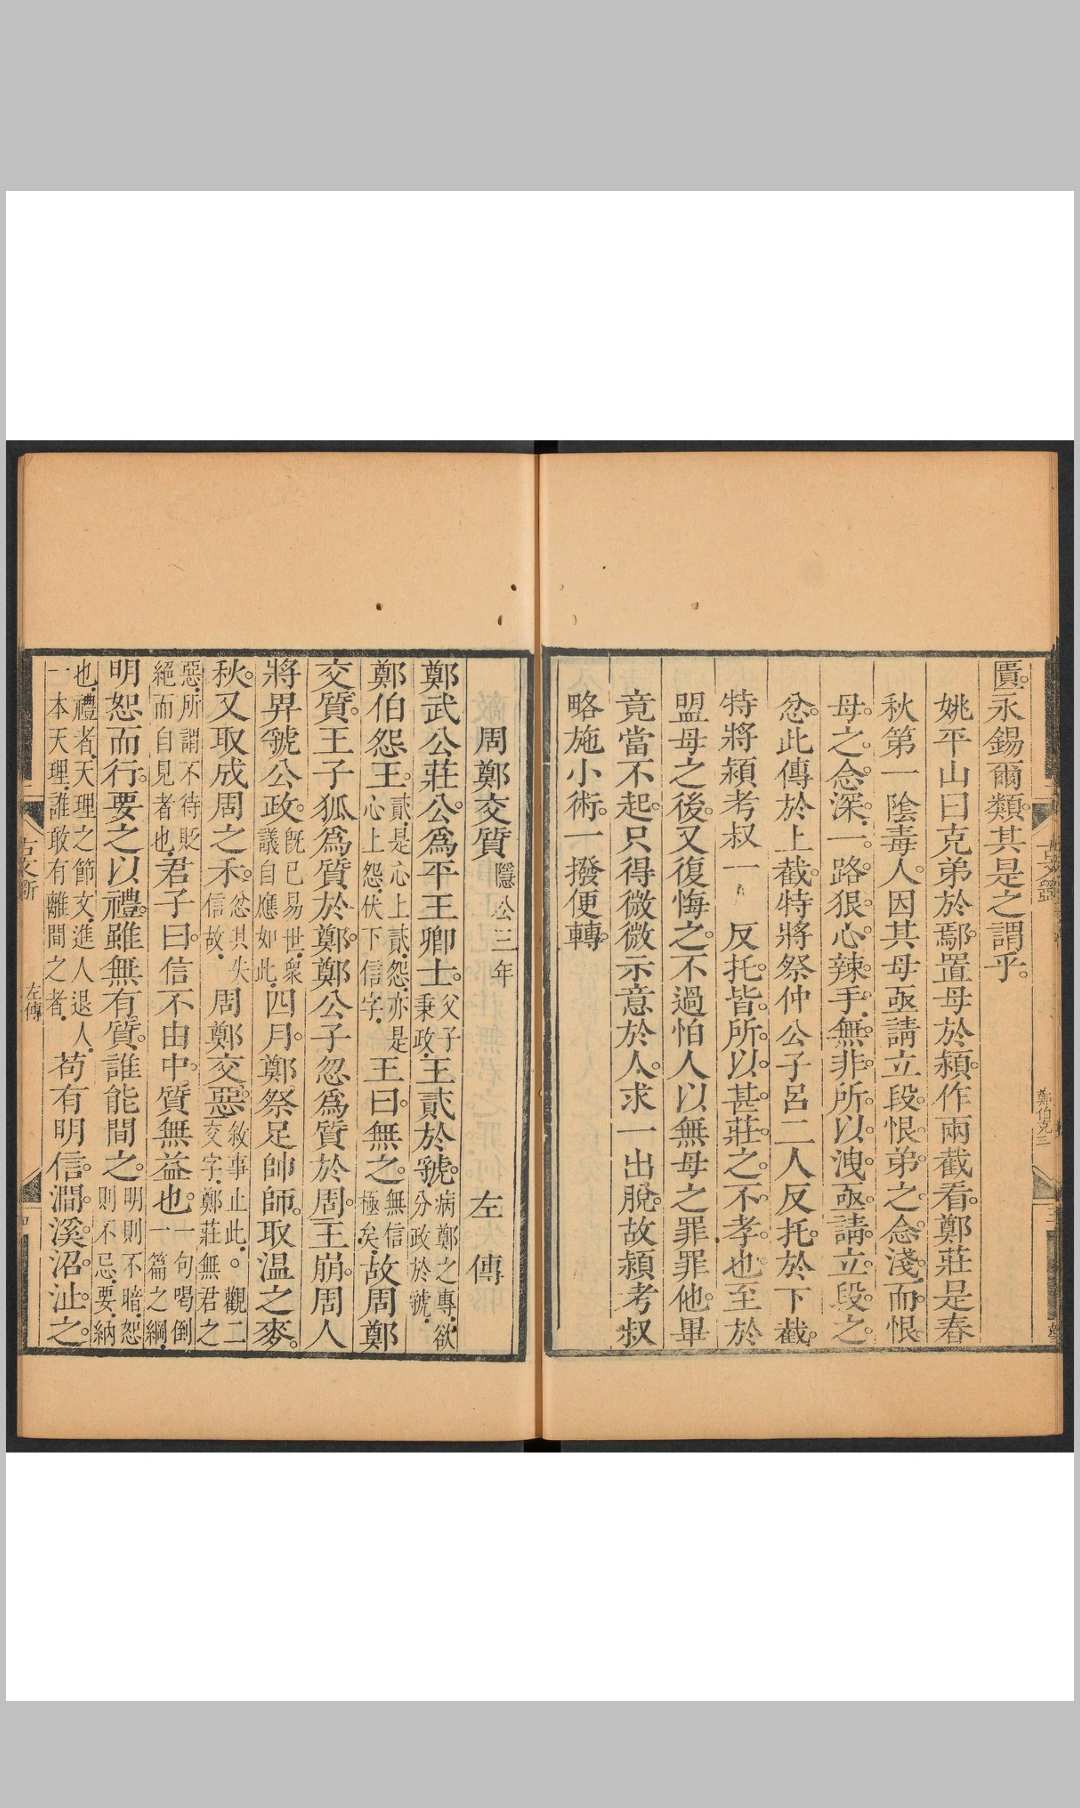 匱永錫爾類其是之謂乎
姚平山曰克弟於鄢置母於潁作兩截看鄭莊是春
秋第一陰毒人因其母亟請立段恨弟之念淺而恨
母之念深一路狠心辣手無非所以洩亟請立段之
忿此傳於上截特將祭仲公子呂二人反托於下截
特將潁考叔一 反托皆所以甚莊之不孝也至於
盟母之後又復悔之不過怕人以無母之罪罪他畢
竟當不起只得微微示意於人求一出脫故潁考叔
略施小術一撥便轉
鄭伯克三
周鄭交質 隱公三年 左傳
鄭武公莊公爲平王卿士父子秉政王貳於虢病鄭之專欲分政於虢
鄭伯怨王貳是心上貳怨亦是心上怨伏下信字王曰無之無信極矣故周鄭
交質王子狐爲質於鄭鄭公子忽爲質於周王崩周人
將畀虢公政既已易世衆議自應如此四月鄭祭足帥師取温之麥
秋又取成周之禾忿其失信故周鄭交惡敘事止此觀二交字鄭莊無君之
惡所謂不待貶絕而自見者也君子曰信不由中質無益也一句喝倒一篇之綱
明恕而行要之以禮雖無有質誰能間之明則不暗恕則不忌要納
也禮者天理之節文進人退人一本天理誰敢有離間之者苟有明信澗溪沼沚之
左傳